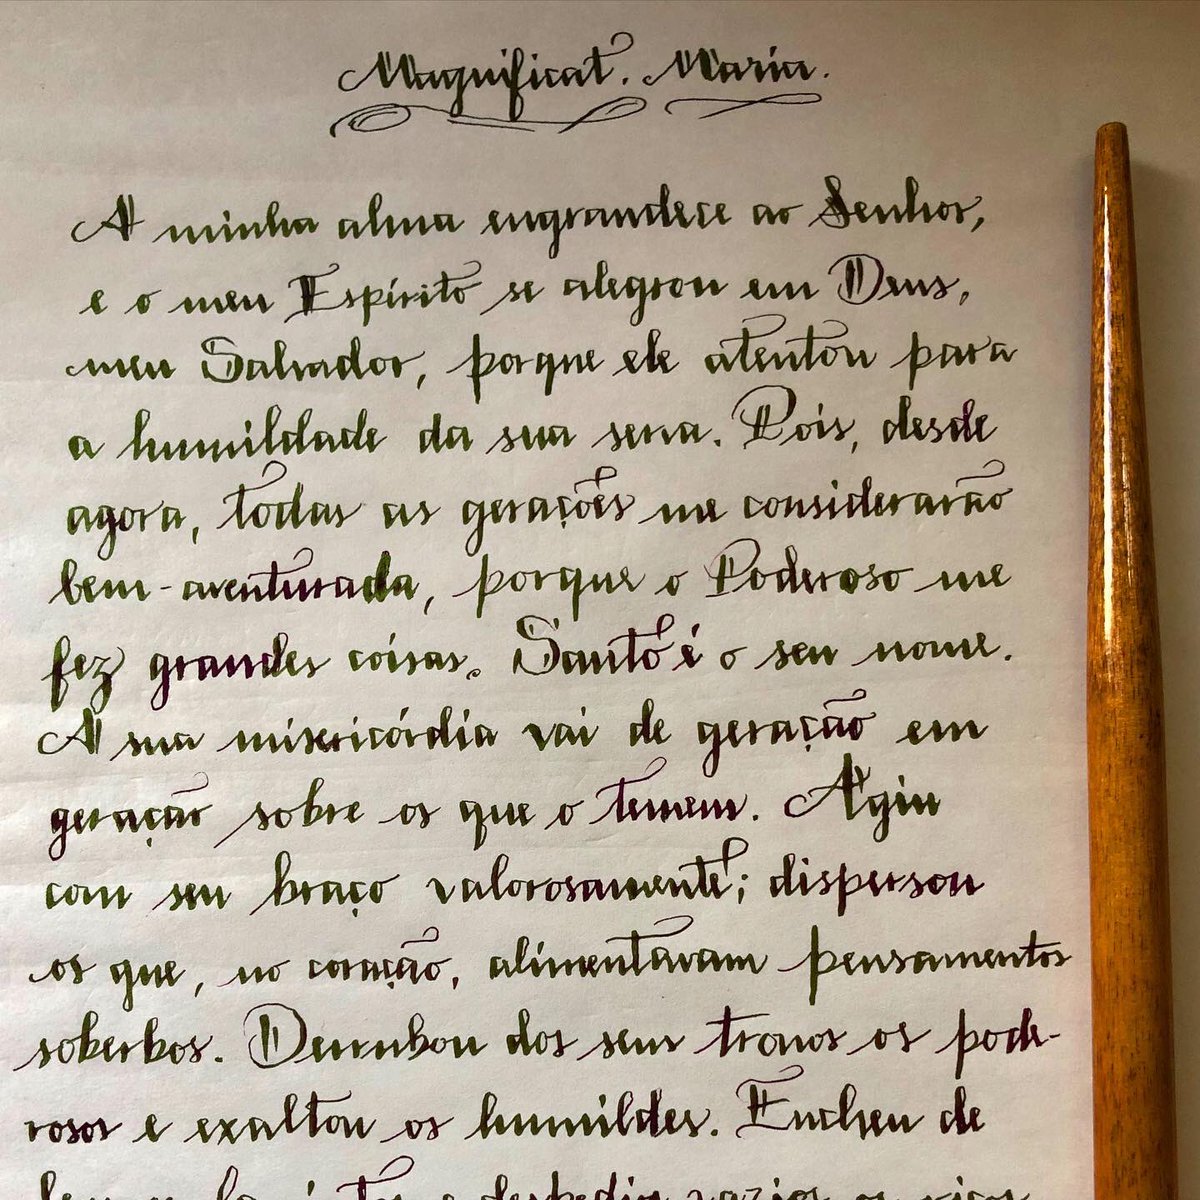 Magnificat. Maria.
A minha alma engrandece ao Senhor,
e o meu Espírito se alegrou em Deus,
meu Salvador, porque ele atentou para
a humildade da sua serva. Pois, desde
agora, todas as gerações me considerarão
bem-aventurada, porque o Poderoso me
fez grandes coisas. Santo é o seu nome.
A sua misericórdia vai de geração em
geração sobre os que o temem. Agiu
com seu braço valorosamente; dispersou
os que, no coração, alimentavam pensamentos
soberbos. Derrubou dos seus tronos os pode-
rosos e exaltou os humildes. Encheu de
e despediu vazios os ricos